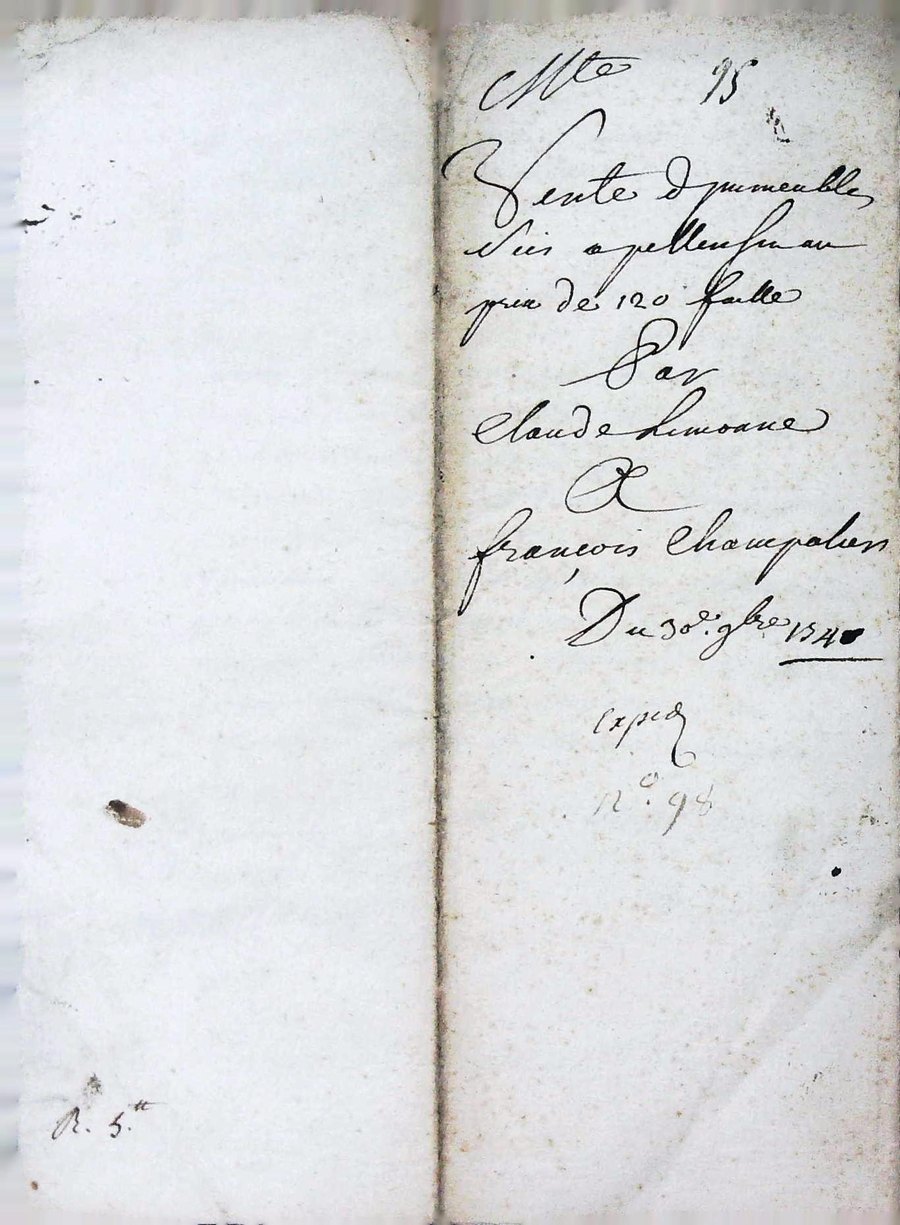 Mte 95
Vente d'immeubles
sis a pellussin au
prix de 120 faitte
Par
Claude Limonne
A
françois Champalier
Du 30e. 9bre
Exped
No. 98
R. 5.tt